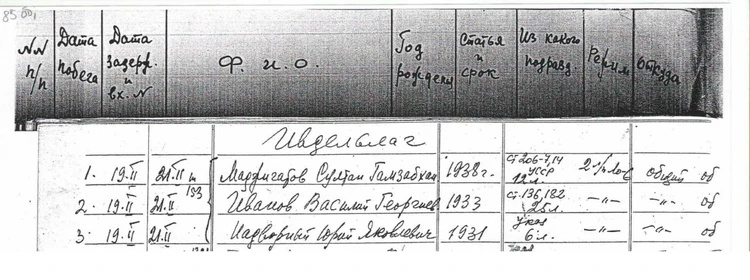 85 об.
NN п/п Дата побега Дата задерж. и вх. N Ф. и. о. Год рождения Статья и срок Из какого подразд. Режим Откуда
Ивдельлаг
1. 19.II 21.II 1938г. ст 206-7,14 УССР 12 л. общий об
2. 19.II 21.II Иванов Василий Георгиев 1933 ст. 136,182 25 л. -„- -„- об
3. 19.II 21.II Надворный Юрий Яковлевич 1931 Указ 6 л. -„- -„- об